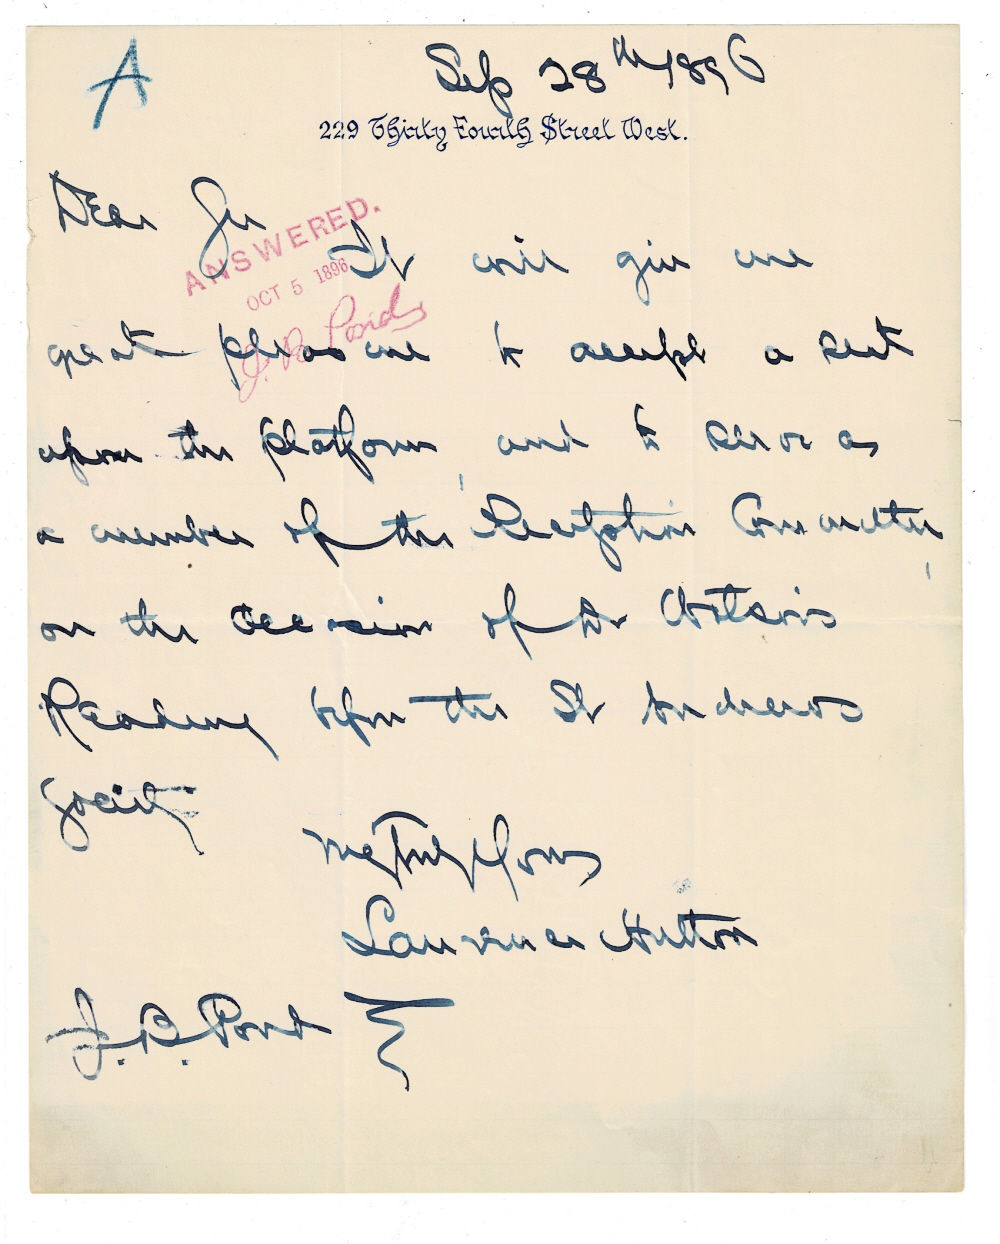 A
Sep 28th 1896
229 Thirty Fourth Street West.
Dear Sir
ANSWERED.
OCT 5 1896
J. B. Pond
It will give me
great pleasure to accept a seat
upon the platform, and to serve as
a member of the Reception Committee,
on the occasion of Dr Watson's
Reading before the St Andrews
Society
Very Truly Yours
Laurence Hutton
J. B. Pond Esq